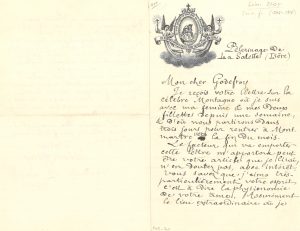 Pèlerinage de
La Salette (Isère)
Mon cher Godefroy
Je reçois votre lettre sur la
célèbre Montagne où je suis
avec ma femme & mes deux
fillettes depuis une semaine,
D'où nous partirons dans
trois jours pour rentrer à Mont
martre la fin du mois.
Le facteur qui va emporter
cette lettre m'apportera peut
être votre article que je lirai,
n'en doutez pas, avec intérêt.
Vous savez que j'aime très
particulièrement votre esprit,
c'est à dire la physionomie
de votre âme.
le lieu extraordinaire où je